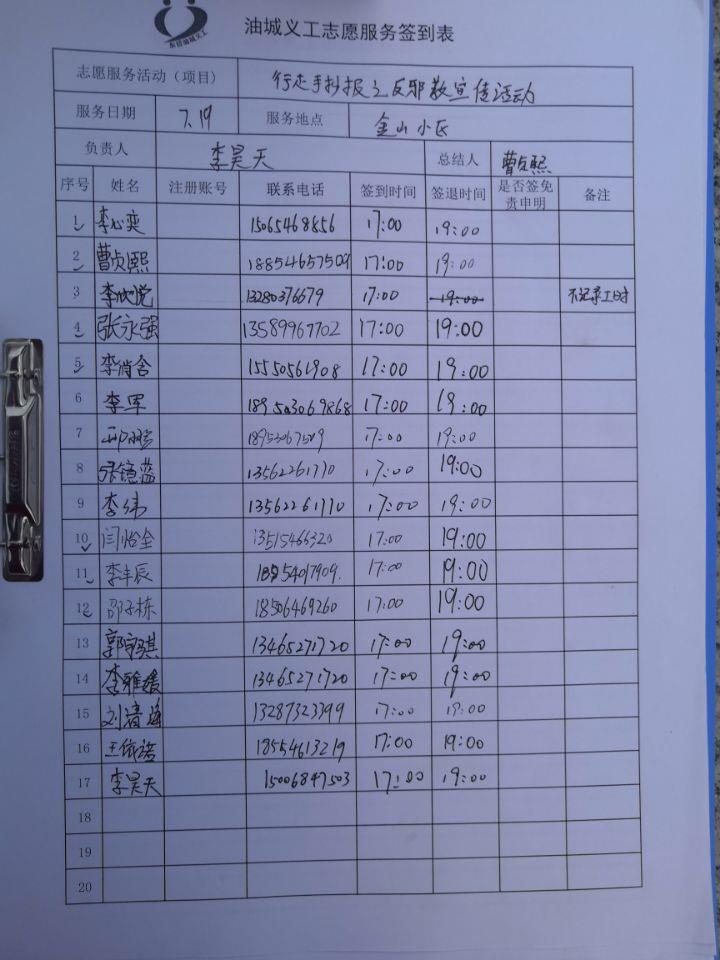 东营油城义工
油城义工志愿服务签到表
志愿服务活动（项目） 行走手抄报之反邪教宣传活动
服务日期 7.19 服务地点 金山小区
负责人 李昊天 总结人 曹贞熙
序号 姓名 注册账号 联系电话 签到时间 签退时间 是否签免责申明 备注
1 李心奕 15065468856 17:00 19:00
2 曹贞熙 18854657509 17:00 19:00
3 李欣悦 13280376679 17:00 19:00 不记录工时
4 张永强 13589967702 17:00 19:00
5 李尚含 15550561908 17:00 19:00
6 李军 17:00 19:00
7 18953067509 17:00 19:00
8 张镜蓝 13562261770 17:00 19:00
9 李纬 13562261770 17:00 19:00
10 闫怡全 13515466320 17:00 19:00
11 李丰辰 17:00 19:00
12 邵子栋 18506469260 17:00 19:00
13 郭宇琪 13465271720 17:00 19:00
14 李雅媛 13465271720 17:00 19:00
15 刘清 13287323799 17:00 19:00
16 王依诺 18554613219 17:00 19:00
17 李昊天 15006847503 17:00 19:00
18
19
20